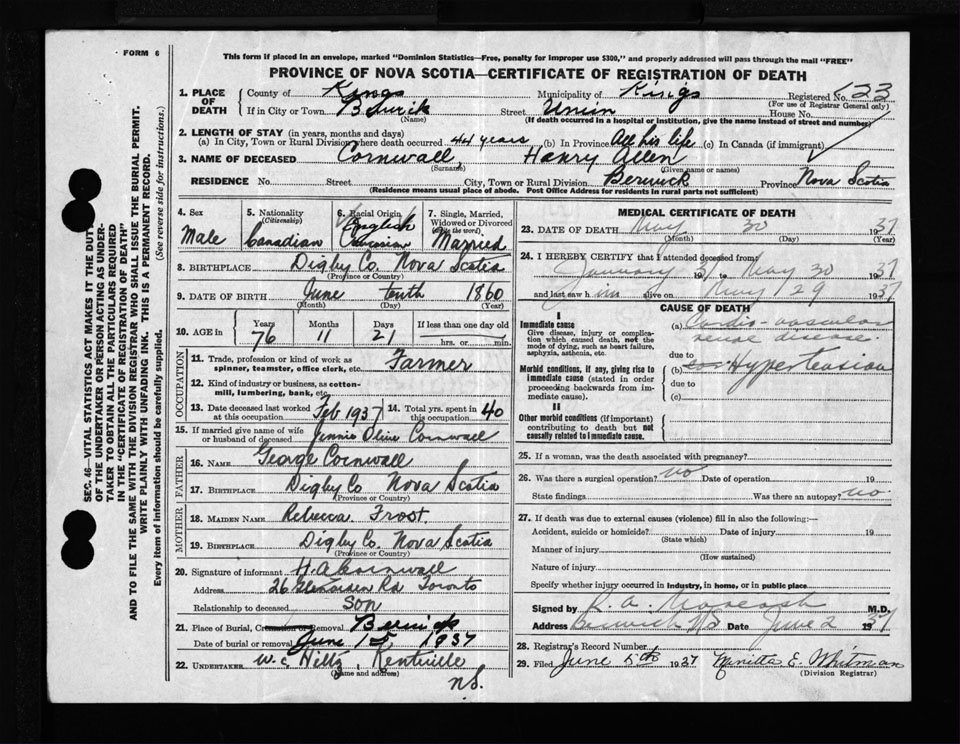 FORM 6
This form if placed in an envelope, marked "Dominion Statistics—Free, penalty for improper use $300," and properly addressed will pass through the mail "FREE"
PROVINCE OF NOVA SCOTIA—CERTIFICATE OF REGISTRATION OF DEATH
SEC. 46—VITAL STATISTICS ACT MAKES IT THE DUTY
OF THE UNDERTAKER OR PERSON ACTING AS UNDER-
TAKER TO OBTAIN ALL THE PARTICULARS REQUIRED
IN THE "CERTIFICATE OF REGISTRATION OF DEATH"
AND TO FILE THE SAME WITH THE DIVISION REGISTRAR WHO SHALL ISSUE THE BURIAL PERMIT.
WRITE PLAINLY WITH UNFADING INK. THIS IS A PERMANENT RECORD.
Every item of information should be carefully supplied. (See reverse side for instructions.)
1. PLACE OF DEATH County of Kings Municipality of Kings Registered No. 23
(For use of Registrar General only)
If in City or Town Berwick (Name) Street Union House No.
(If death occurred in a hospital or institution, give the name instead of street and number)
2. LENGTH OF STAY (in years, months and days)
(a) In City, Town or Rural Division where death occurred 44 years (b) In Province All his life (c) In Canada (if immigrant)
3. NAME OF DECEASED Cornwall, Henry Allen
(Surname) (Given name or names)
RESIDENCE No. Street City, Town or Rural Division Berwick Province Nova Scotia
(Residence means usual place of abode. Post Office Address for residents in rural parts not sufficient)
4. Sex Male
5. Nationality (Citizenship) Canadian
6. Racial Origin English Caucasian
7. Single, Married, Widowed or Divorced (write the word) Married
8. BIRTHPLACE Digby Co. Nova Scotia
(Province or Country)
9. DATE OF BIRTH June tenth 1860
(Month) (Day) (Year)
10. AGE in Years 76 Months 11 Days 21 If less than one day old hrs. or min.
OCCUPATION
11. Trade, profession or kind of work as spinner, teamster, office clerk, etc. Farmer
12. Kind of industry or business, as cotton-mill, lumbering, bank, etc.
13. Date deceased last worked at this occupation Feb 1937 14. Total yrs. spent in this occupation 40
15. If married give name of wife or husband of deceased Jennie Olive Cornwall
FATHER
16. NAME George Cornwall
17. BIRTHPLACE Digby Co Nova Scotia
(Province or Country)
MOTHER
18. MAIDEN NAME Rebecca Frost.
19. BIRTHPLACE Digby Co. Nova Scotia
(Province or Country)
20. Signature of informant H. A. Cornwall
Address 26 Rd Toronto
Relationship to deceased Son
21. Place of Burial, Cremation or Removal Berwick
Date of burial or removal June 1st 1937
22. UNDERTAKER W. C. Hiltz, Kentville
(Name and address)
N.S.
MEDICAL CERTIFICATE OF DEATH
23. DATE OF DEATH May 30 1937
(Month) (Day) (Year)
24. I HEREBY CERTIFY that I attended deceased from:
January 1937 to May 30 1937
and last saw h im alive on May 29 1937
CAUSE OF DEATH
I
Immediate cause
Give disease, injury or complication which caused death, not the mode of dying, such as heart failure, asphyxia, asthenia, etc.
(a) Cardio-vascular renal disease.
due to
Morbid conditions, if any, giving rise to immediate cause (stated in order proceeding backwards from immediate cause).
(b) Hypertension
due to
(c)
II
Other morbid conditions (if important) contributing to death but not causally related to immediate cause.
25. If a woman, was the death associated with pregnancy?
26. Was there a surgical operation? no Date of operation 19
State findings Was there an autopsy? no
27. If death was due to external causes (violence) fill in also the following:—
Accident, suicide or homicide? Date of injury 19
(State which)
Manner of injury
(How sustained)
Nature of injury
Specify whether injury occurred in industry, in home, or in public place
Signed by R. A. M.D.
Address Berwick NS Date June 2 1937
28. Registrar's Record Number
29. Filed June 5th 1937 E. Whitman
(Division Registrar)